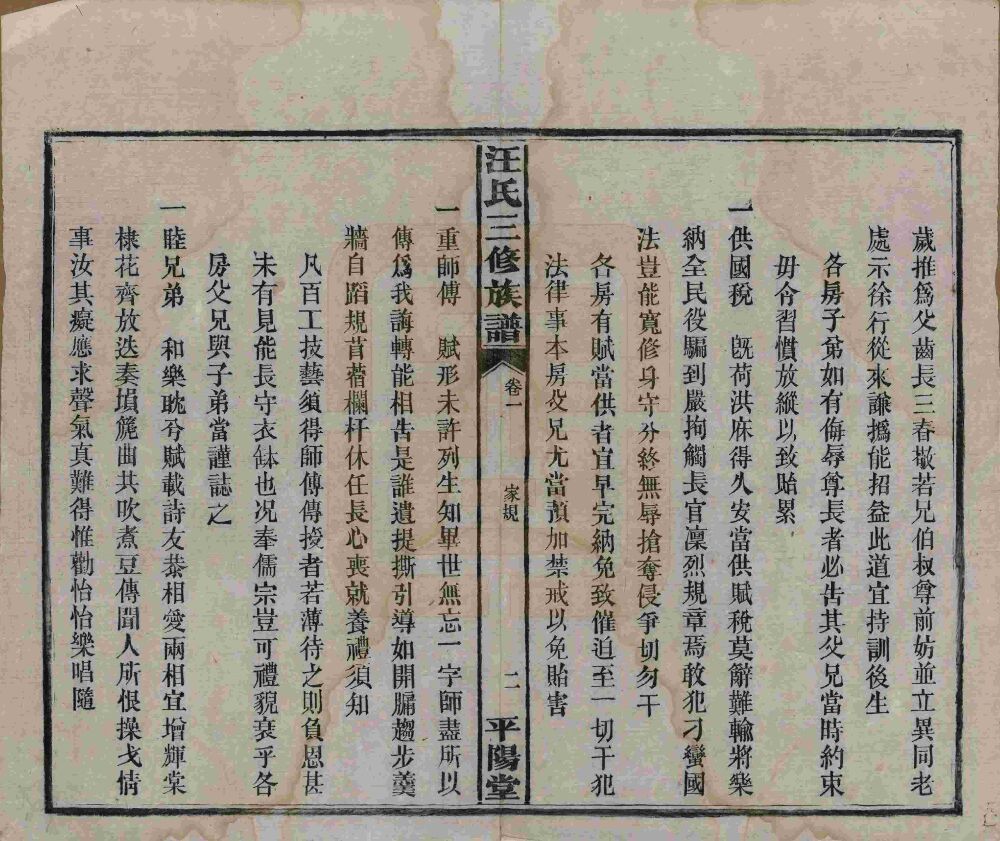 歲推爲父齒長三春敬若兄伯叔尊前妨並立異同老
處示徐行從來謙撝能招益此道宜持訓後生
各房子弟如有侮辱尊長者必告其父兄當時約束
毋令習慣放縱以致貽累
一供國稅 旣荷洪庥得久安當供賦稅莫辭難輸將樂
納全民役騙到嚴拘觸長官凜烈規章焉敢犯刁蠻國
法豈能寬修身守分終無辱搶奪侵爭切勿干
各房有賦當供者宜早完納免致催迫至一切干犯
法律事本房父兄尤當預加禁戒以免貽害
汪氏三修族譜 卷一 家規 二 平陽堂
一重師傅 賦形未許列生知畢世無忘一字師盡所以
傳爲我誨轉能相告是誰遺提撕引導如開牖趨步羹
牆自蹈規苜蓿欄杆休任長心喪就養禮須知
凡百工技藝須得師傅傳授者若薄待之則負恩甚
未有見能長守衣缽也况奉儒宗豈可禮貌衰乎各
房父兄與子弟當謹誌之
一睦兄弟 和樂眈兮賦載詩友恭相愛兩相宜增輝棠
棣花齊放迭奏塤篪曲共吹煮豆傳聞人所恨操戈情
事汝其癡應求聲氣真難得惟勸怡怡樂唱隨